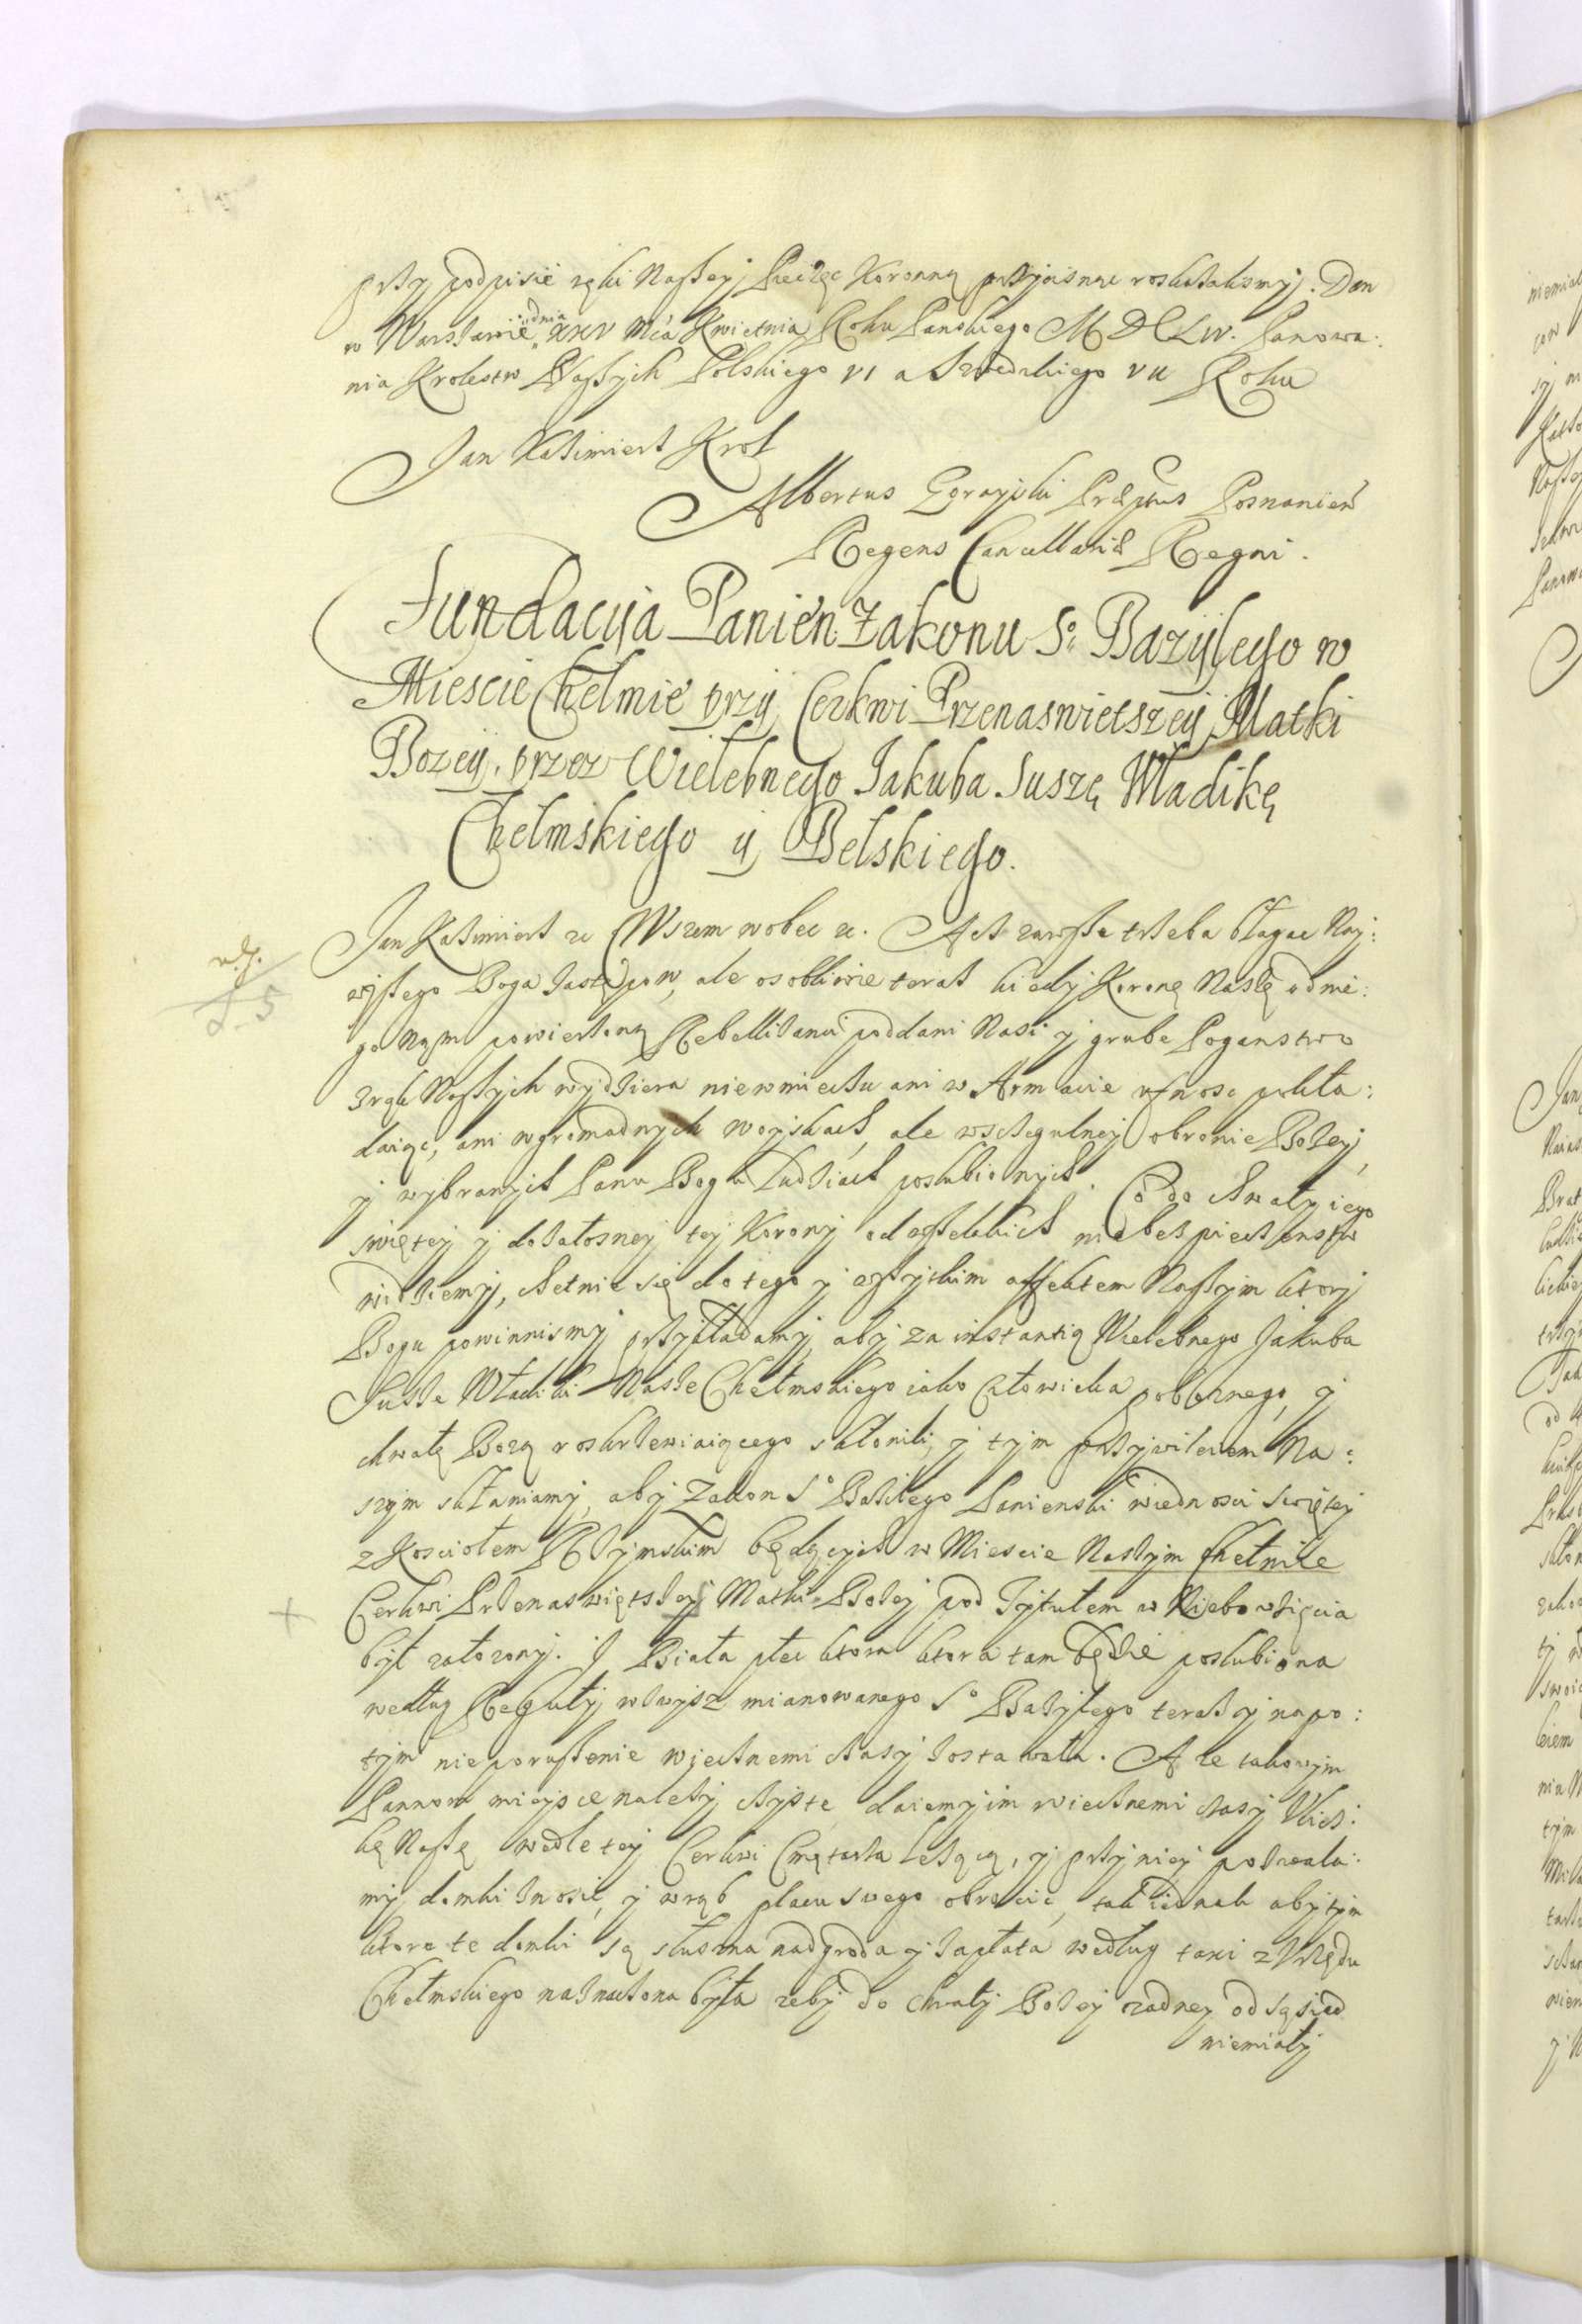 przy podpisie ręki Naszey Pieczęc Koronną przycisnąc roskazalismy. Dan
w Warszawie dnia XXV Mca Kwietnia Roku Panskiego MDCLIV. Panowa:
nia Krolestw Naszych Polskiego VI a Szwedzkiego VII Roku
Jan Kazimierz Krol
Albertus Gorayski Præptus Posnanień
Regens Cancellariæ Regni.
Fundacyja Panien Zakonu So Bazylego w
Miescie Chełmie przy Cerkwi Przenaswietszey Matki
Bozey, przez Wielebnego Jakuba Suszę Władikę
Chełmskiego y Bełskiego.
Jan Kazimierz etc Wszem wobec etc. Acz zawsze trzeba błagac Nay:
wyszego Boga Zastępow, ale osobliwie teraz kiedy Koronę Naszę od nie:
go Nam powierzoną Rebellizanci poddani Nasi y grube Poganstwo
z rąk Naszych wydziera nie w mieczu ani w Armacie ufnosc pokła:
daiąc, ani w gromadnych woyskach, ale w szczegulney obronie Bozey,
y wybranych Panu Bogu Ludziach poslubionych. Co do chwały iego
swiętey y do załosney tey Korony od wszelakich niebespieczenstw
widziemy, chetnie się do tego y wszytkim affektem Naszym ktory
Bogu powinnismy przykładamy, aby za instantią Wielebnego Jakuba
Susze Władiki Nasze Chełmskiego iako Człowieka poboznego, y
chwałę Bozą roskrzewiaiącego skłonili, y tym przywileiem Na:
szym skłaniamy, aby Zakon So Bazilego Panienski w iednosci swiętey
z Kosciołem Rzymskim będących w Miescie Naszym Chełmie
Cerkwi Przenaswiętszey Matki Bozey pod Tytułem w Niebowzięcia
był załozony. Y Biała płec ktora ktora tam będzie poslubiona
według Reguły wzwysz mianowanego So Bazylego teraz y napo:
tym nieporuszenie wiecznemi czasy zostawała. A ze takowym
Pannom mieysce nalezy czyste, daiemy im wiecznemi czasy Ulicz:
kę Naszę wedle tey Cerkwi Cmętarza lezącą, y przy niey pozwala:
my domki znosic, y w rąb placu swego obrocic, tak iednak aby tym
ktore te domki są słuszna nadgroda y zapłata według taxi z Urzędu
Chełmskiego naznaczona była zeby do chwały Bozey zadney od sąsiad
niemiały